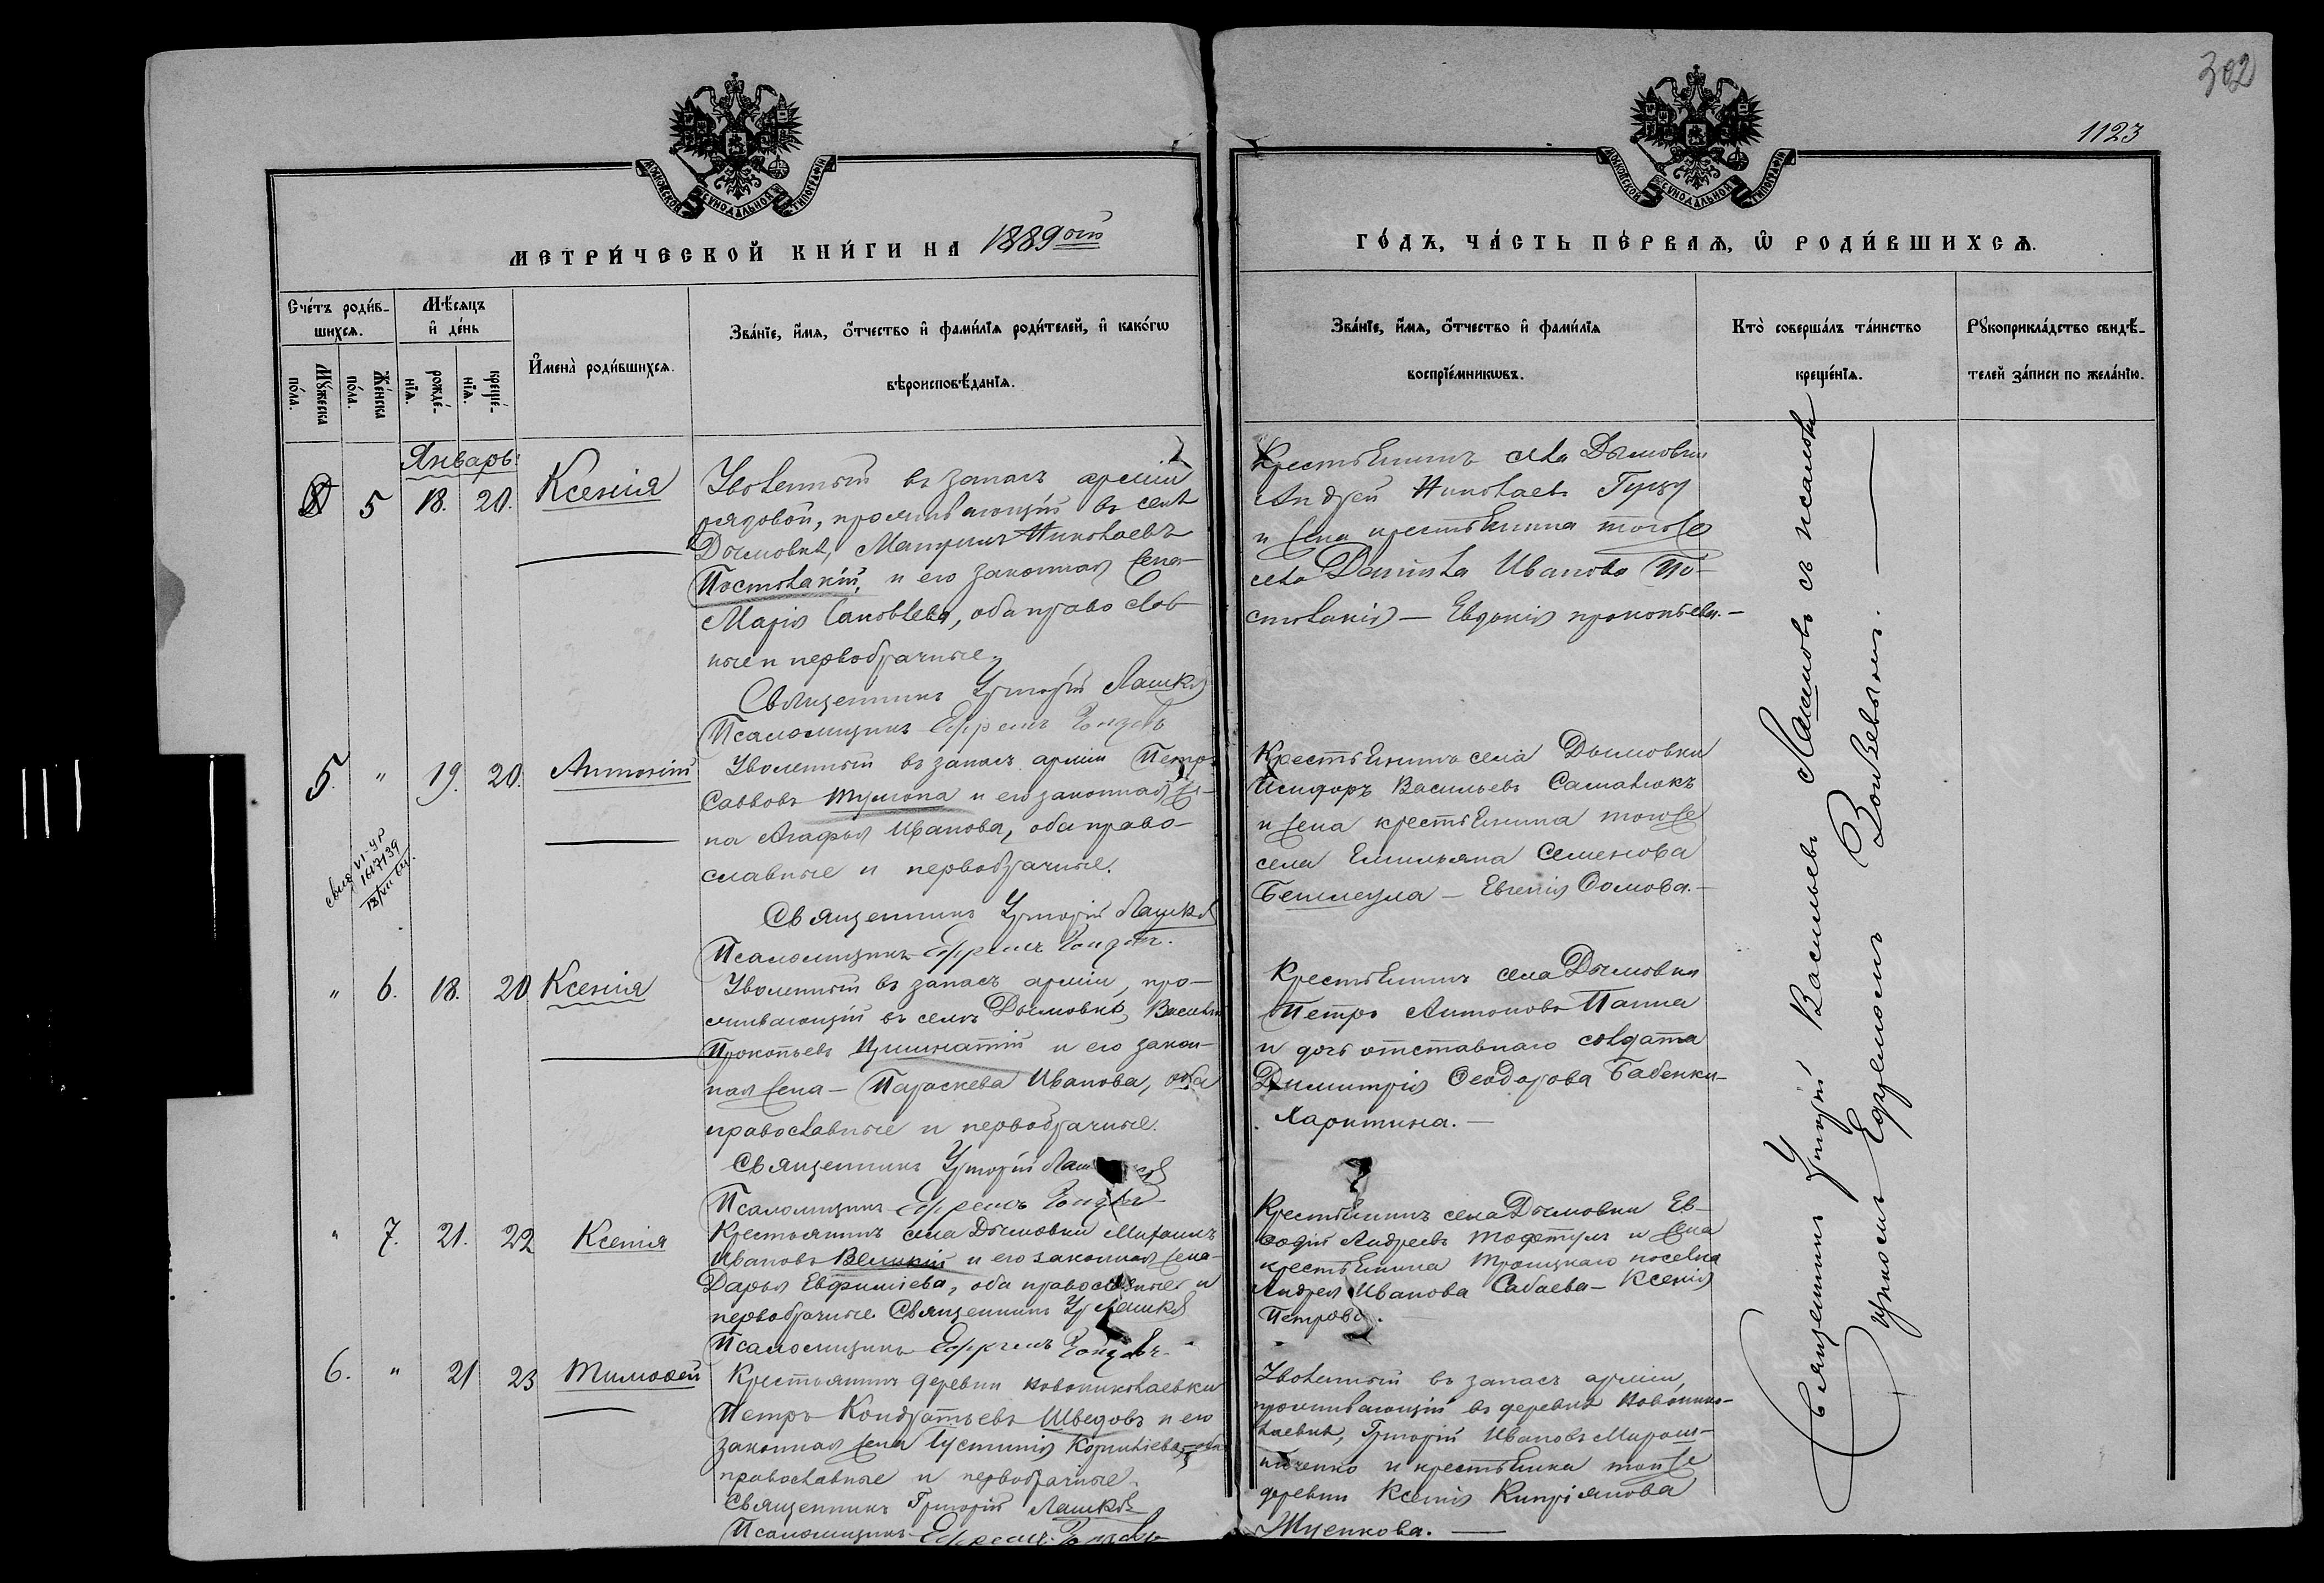 302
1123
МОСКОВСКОЙ СѴНОДАЛЬНОЙ ТИПОГРАФІИ
МОСКОВСКОЙ СѴНОДАЛЬНОЙ ТИПОГРАФІИ
МЕТРИ́ЧЕСКОЙ КНИ́ГИ НА 1889ый
ГО́ДЪ, ЧА́СТЬ ПЕ́РВАѦ, Ѡ РОДИ́ВШИХСѦ.
Сче́тъ роди́в-
шихсѧ.
Мѣ́сяцъ
и де́нь
Мꙋ́жеска
по́ла.
Же́нска
по́ла.
рожде́-
нїѧ.
креще́-
нїѧ.
Имена̀ роди́вшихсѧ.
Зва́нїе, и́мѧ, о́тчество и фами́лїѧ роди́телей, и како́гѡ
вѣроисповѣ́данїѧ.
Зва́нїе, и́мѧ, о́тчество и фами́лїѧ
воспрїе́мникѡвъ.
Кто̀ соверша́лъ та́инство
креще́нїѧ.
Рꙋкоприкла́дство свидѣ́-
телей за́писи по жела́нїю.
Январь:
5 18. 20. Ксенія
Уволенный въ запасъ арміи
рядовой, проживающій въ селѣ
Дымовкѣ, Николаевъ
Постолакій, и его законная жена
Марія Іаковлева, оба православ-
ные и первобрачные.
Священникъ Григорій Лашковъ
Псаломщикъ Ефремъ
Крестьянинъ села Дымовки
Андрей Николаевъ Гуцу
и жена крестьянина тогоже
села Даниила Иванова По-
столакія — Евдокія прокопьева.—
5. " 19. 20. Антоній
Уволенный въ запасъ арміи Петръ
Саввовъ и его законная же-
на Агафья Иванова, оба право-
славные и первобрачные.
Священникъ Григорій Лашковъ
Псаломщикъ Ефремъ
Крестьянинъ села Дымовки
Исидоръ Васильевъ Саманюкъ
и жена крестьянина тогоже
села Емильяна Семенова
— Евгенія Ѳомова.—
" 6. 18. 20 Ксенія
Уволенный въ запасъ арміи, про-
живающій въ селѣ Дымовкѣ, Василій
Прокопьевъ и его закон-
ная жена — Параскева Иванова, оба
православные и первобрачные.
Священникъ Григорій
Псаломщикъ Ефремъ
Крестьянинъ села Дымовки
Петръ Антоновъ
и дочь отставнаго солдата
Димитрія Ѳеодорова Бабенки—
Харитина.—
" 7. 21. 22 Ксенія
Крестьянинъ села Дымовки Михаилъ
Ивановъ Великій и его законная жена
Дарья Евфиміева, оба православные и
первобрачные. Священникъ Гр Лашковъ
Псаломщикъ Ефремъ
Крестьянинъ села Дымовки Ев-
Андреевъ и жена
крестьянина Троицкаго поселка
Андрея Иванова Сабаева — Ксенія
Петрова.
6. " 21 23 Тимоѳей
Крестьянинъ деревни Новониколаевки
Петръ Кондратьевъ Шведовъ и его
законная жена Іустинія Корниліева, оба
православные и первобрачные.
Священникъ Григорій Лашковъ
Псаломщикъ Ефремъ
Уволенный въ запасъ арміи,
проживающій въ деревнѣ Новонико-
лаевкѣ, Григорій Ивановъ Мирош-
ниченко и крестьянка тойже
деревни Ксенія Кипріянова
Священникъ Григорій Васильевъ Лашковъ съ псаломщикомъ Ефремомъ